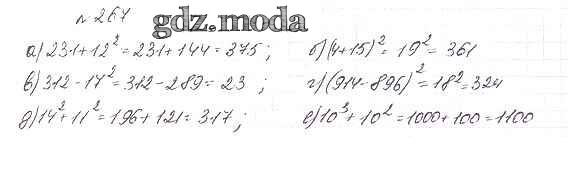 № 267 gdz.moda
а) 231+12² = 231+144 = 375; б) (4+15)² = 19² = 361
в) 312-17² = 312-289 = 23; г) (914-896)² = 18² = 324
д) 14²+11² = 196+121 = 317; е) 10³+10² = 1000+100 = 1100